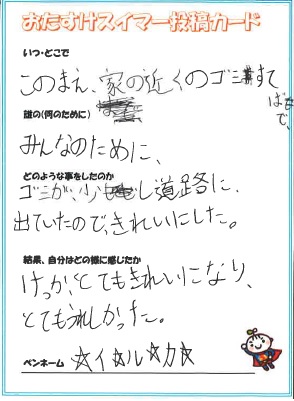 おたすけスイマー投稿カード
いつ・どこで
このまえ、家の近くのゴミすて
ばで、
誰の(何のために)
みんなのために、
どのような事をしたのか
ゴミが、少し道路に、
出ていたので、きれいにした。
結果、自分はどの様に感じたか
けっか、とてもきれいになり、
とてもうれしかった。
ペンネーム ☆イ☆ル☆カ☆